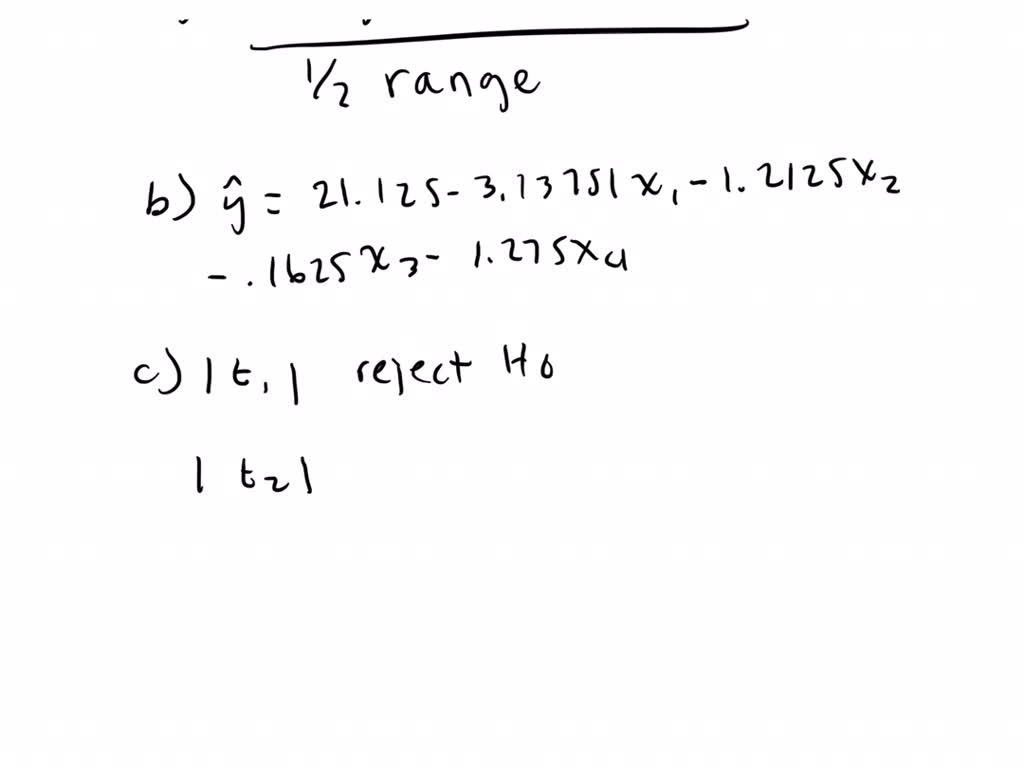 1/2 range
b) ŷ = 21.125 - 3.13751x₁ - 1.2125x₂
- .1625x₃ - 1.275x₄
c) |t₁| reject H₀
|t₂|